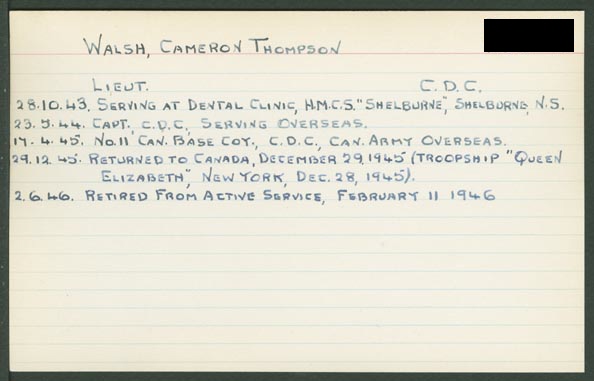 WALSH, CAMERON THOMPSON
LIEUT. C.D.C.
28.10.43. SERVING AT DENTAL CLINIC, H.M.C.S. "SHELBURNE", SHELBURNE, N.S.
23.5.44. CAPT., C.D.C., SERVING OVERSEAS.
17.4.45. No.11 CAN. BASE COY., C.D.C., CAN. ARMY OVERSEAS.
29.12.45. RETURNED TO CANADA, DECEMBER 29, 1945 (TROOPSHIP "QUEEN
ELIZABETH", NEW YORK, DEC. 28, 1945).
2.6.46. RETIRED FROM ACTIVE SERVICE, FEBRUARY 11 1946